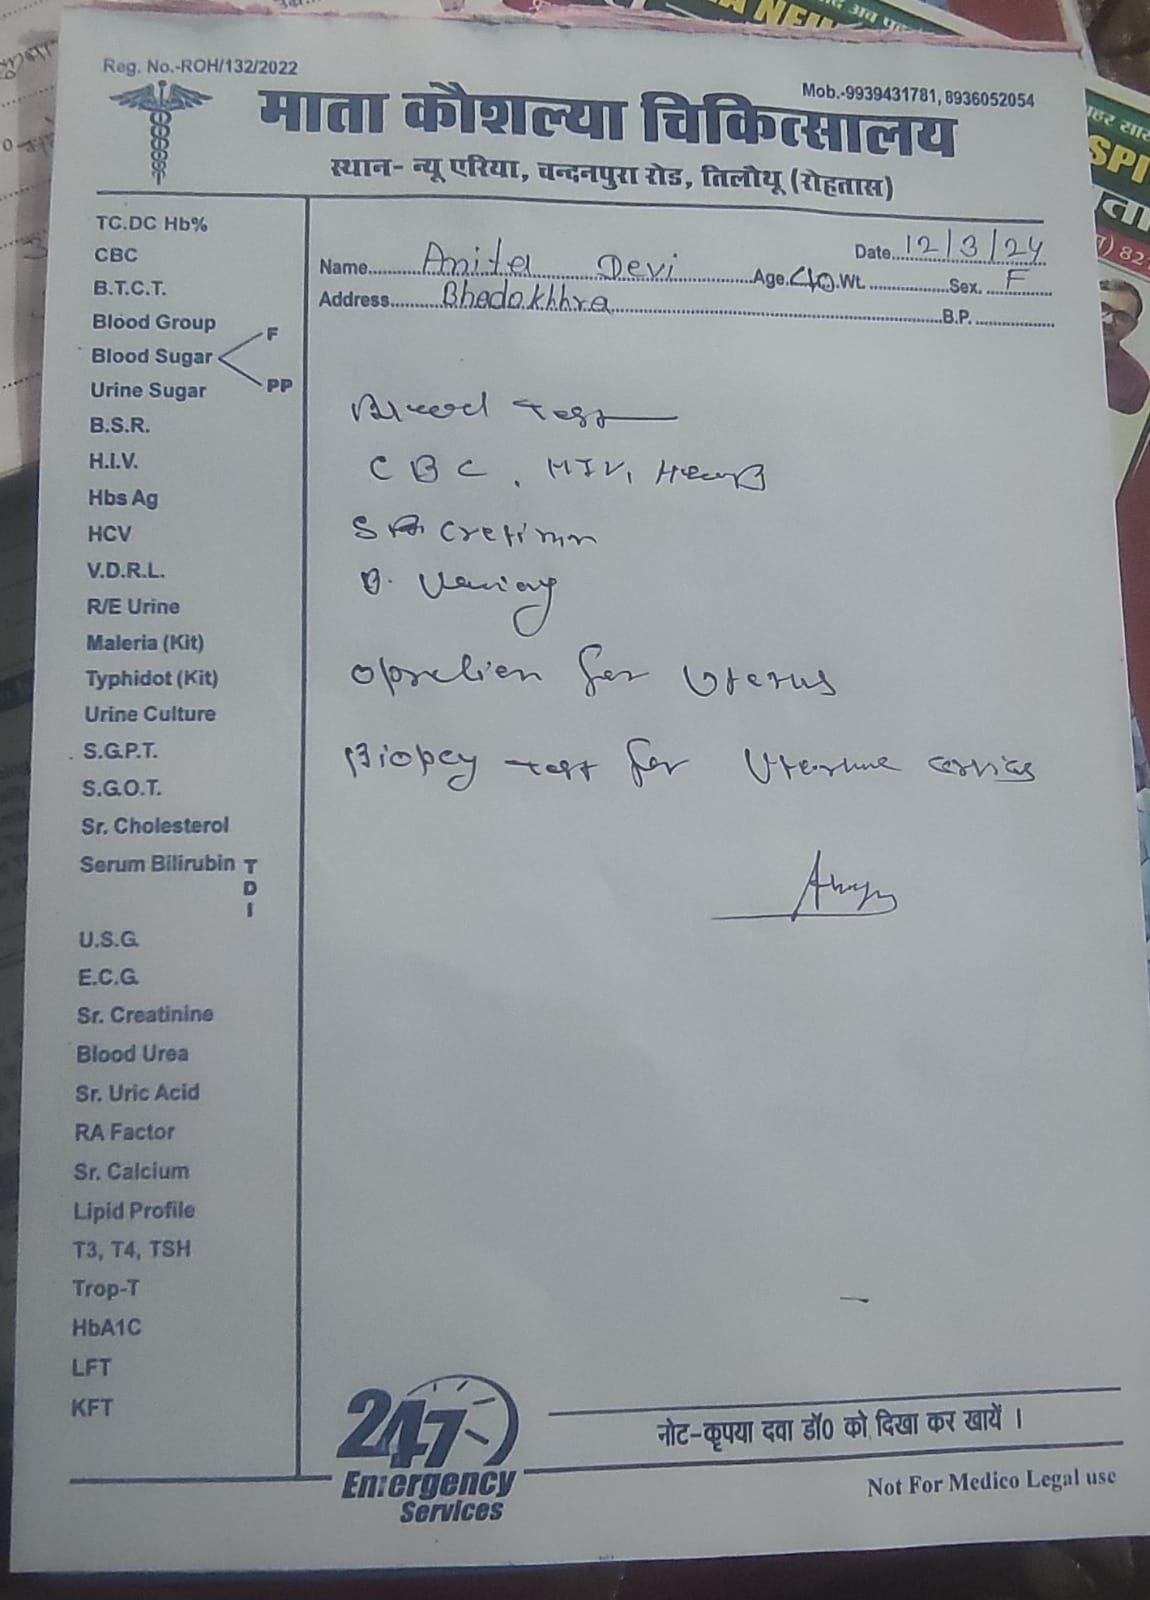 Reg. No.-ROH/132/2022
Mob.-9939431781, 8936052054
माता कौशल्या चिकित्सालय
स्थान- न्यू एरिया, चन्दनपुरा रोड, तिलौथू (रोहतास)
Date..12/3/24
Name.....Anita Devi.....Age.40.Wt. ..........Sex. ..F
Address.....Bhadokhhra.....B.P. ..........
TC.DC Hb%
CBC
B.T.C.T.
Blood Group
Blood Sugar F PP
Urine Sugar
B.S.R.
H.I.V.
Hbs Ag
HCV
V.D.R.L.
R/E Urine
Maleria (Kit)
Typhidot (Kit)
Urine Culture
S.G.P.T.
S.G.O.T.
Sr. Cholesterol
Serum Bilirubin T D I
U.S.G.
E.C.G.
Sr. Creatinine
Blood Urea
Sr. Uric Acid
RA Factor
Sr. Calcium
Lipid Profile
T3, T4, TSH
Trop-T
HbA1C
LFT
KFT
Blood Test
CBC, HIV,
S
B.
for Uterus
Biopcy test for
24x7
Emergency
Services
नोट-कृपया दवा डॉ0 को दिखा कर खायें ।
Not For Medico Legal use